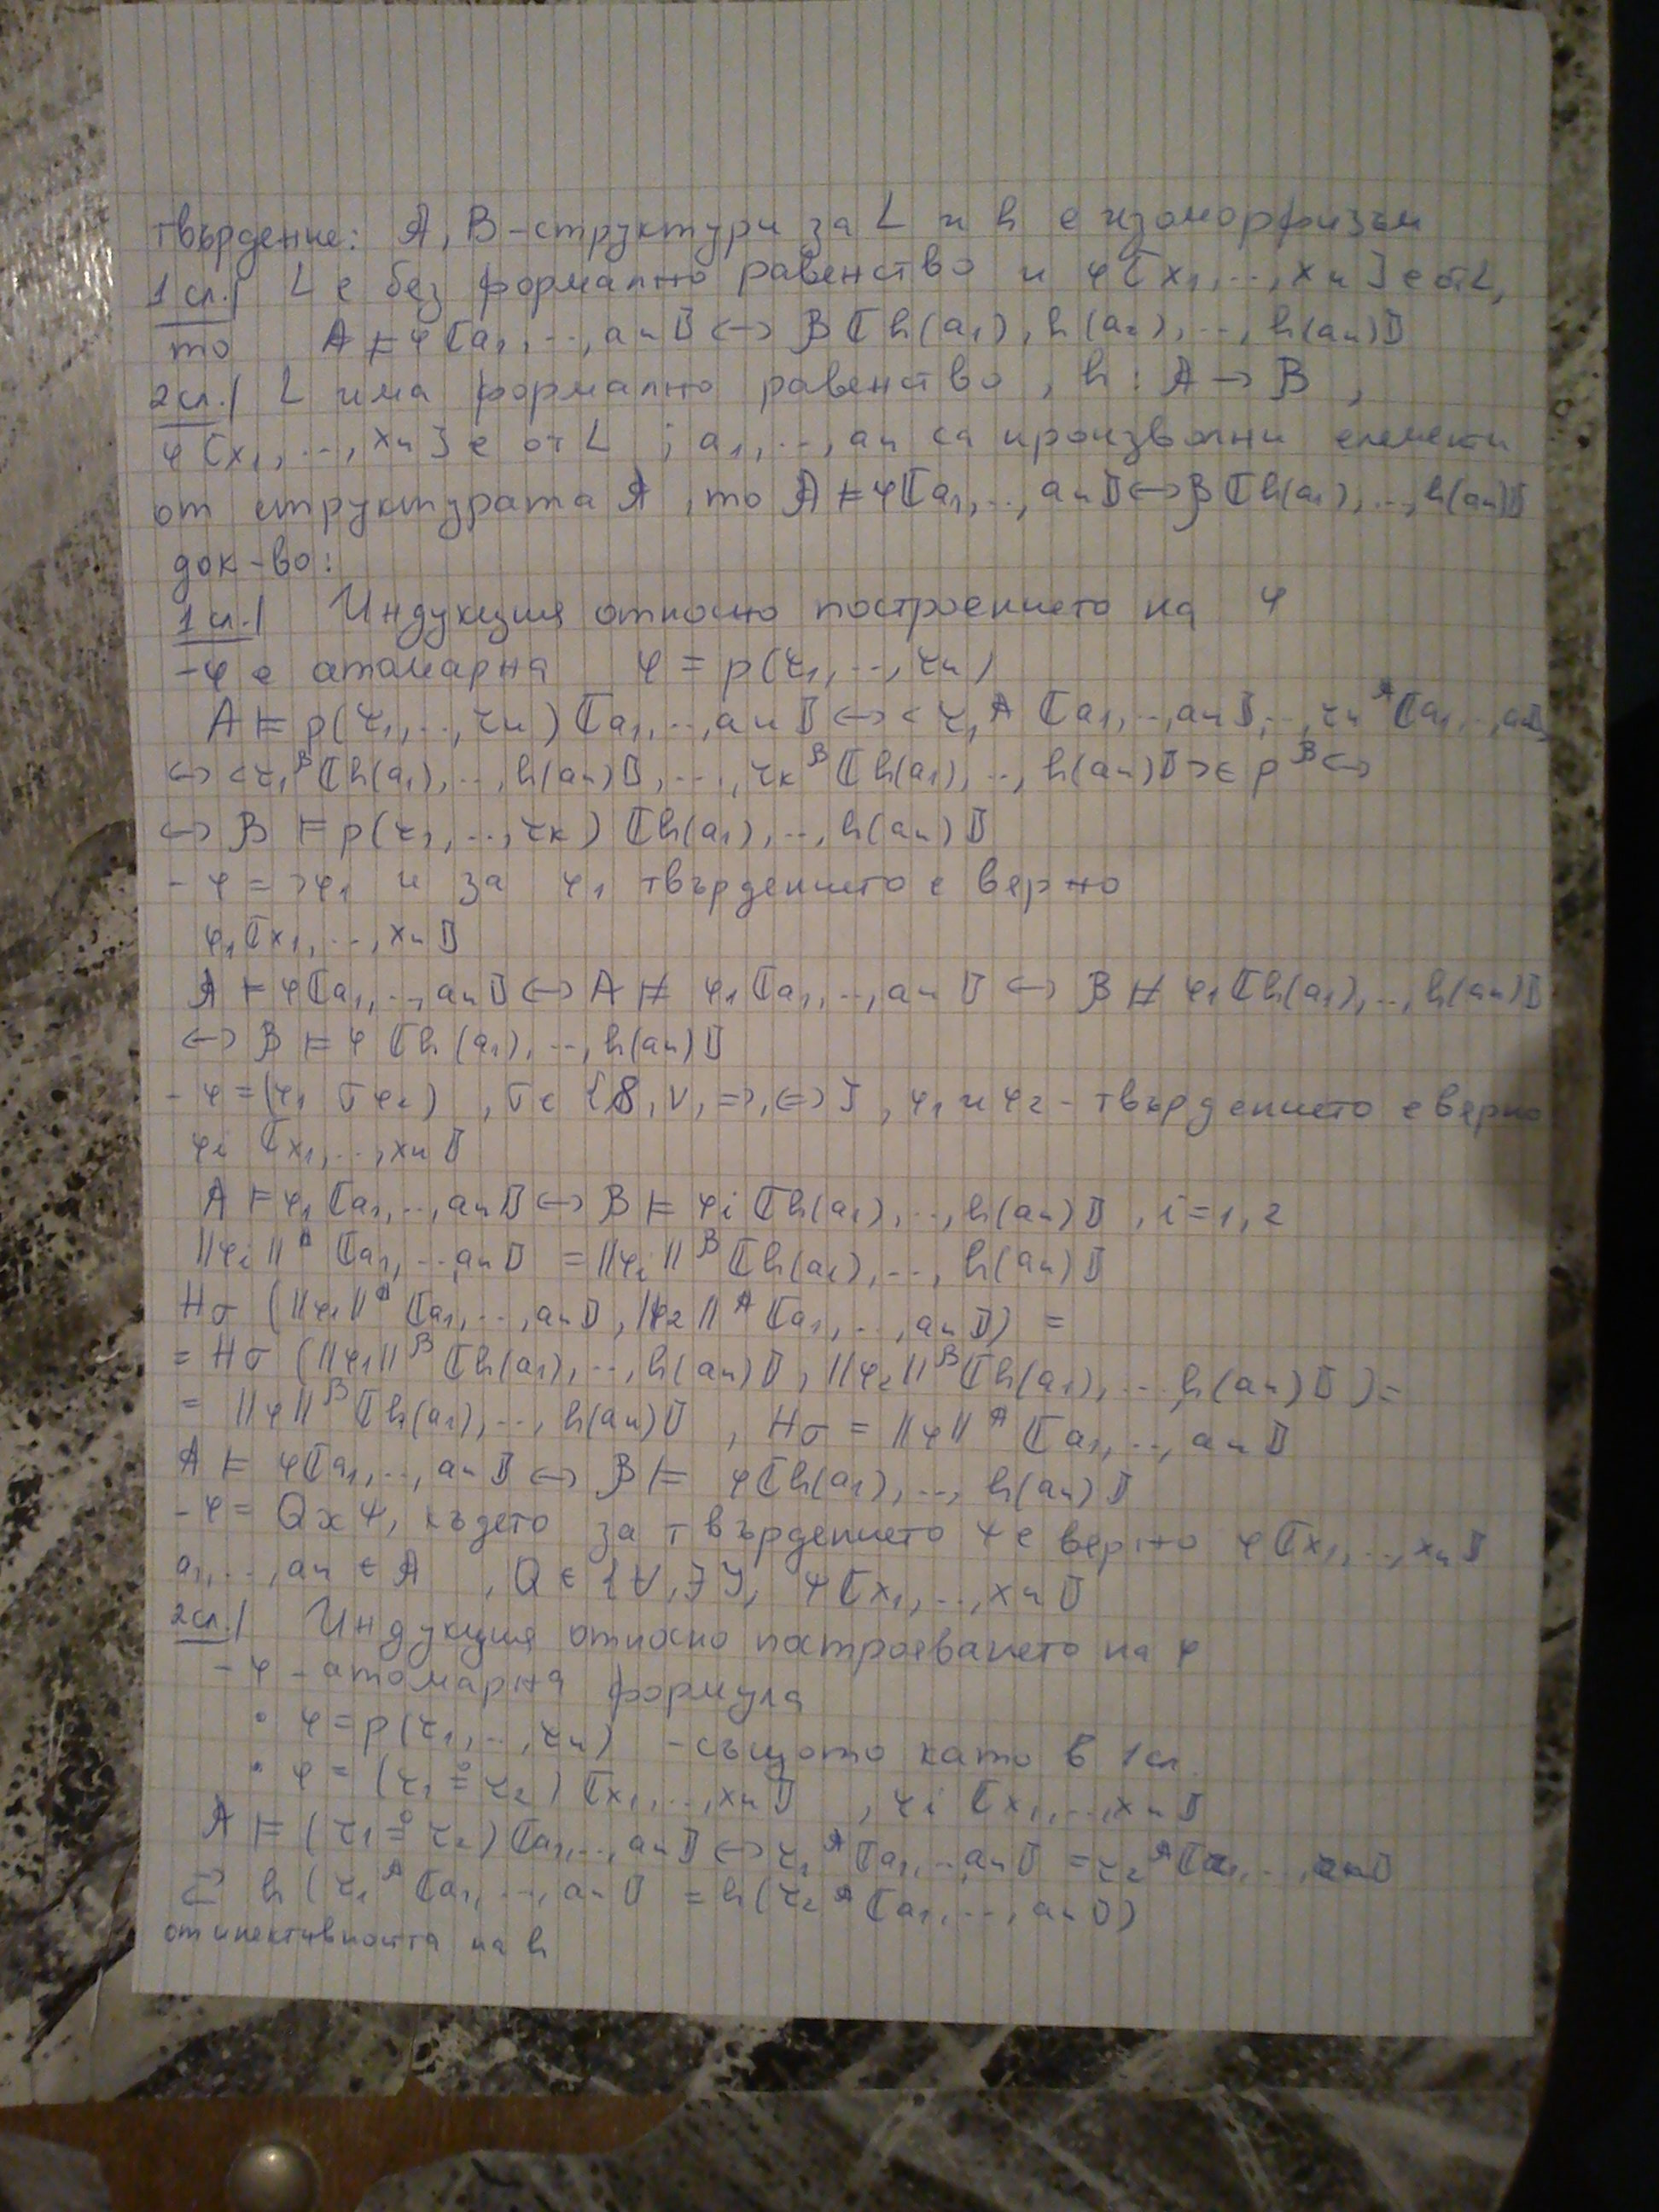 твърдение: A, B - структури за L и h е изоморфизъм
1 сл.| L е без формално равенство и φ[x1, .., xn] е от L,
то A ⊨ φ⟦a1, .., an⟧ <-> B⟦h(a1), h(a2), .., h(an)⟧
2 сл.| L има формално равенство, h: A -> B,
φ[x1, .., xn] е от L ; a1, .., an са произволни елементи
от структурата A, то A ⊨ φ⟦a1, .., an⟧ <-> B⟦h(a1), .., h(an)⟧
док-во:
1 сл.| Индукция относно построението на φ
- φ е атомарна φ = p(τ1, .., τn)
A ⊨ p(τ1, .., τn)⟦a1, .., an⟧ <-> <τ1^A⟦a1, .., an⟧, .., τn^A⟦a1, .., an⟧
<-> <τ1^B⟦h(a1), .., h(an)⟧, .., τk^B⟦h(a1), .., h(an)⟧> ∈ p^B <->
<-> B ⊨ p(τ1, .., τk)⟦h(a1), .., h(an)⟧
- φ = ¬φ1 и за φ1 твърдението е вярно
φ1⟦x1, .., xn⟧
A ⊨ φ⟦a1, .., an⟧ <-> A ⊭ φ1⟦a1, .., an⟧ <-> B ⊭ φ1⟦h(a1), .., h(an)⟧
<-> B ⊨ φ⟦h(a1), .., h(an)⟧
- φ = (φ1 σ φ2), σ ∈ {&, ∨, =>, <=>}, φ1 и φ2 - твърдението е вярно
φi⟦x1, .., xn⟧
A ⊨ φ1⟦a1, .., an⟧ <-> B ⊨ φi⟦h(a1), .., h(an)⟧, i = 1, 2
||φi||^A⟦a1, .., an⟧ = ||φi||^B⟦h(a1), .., h(an)⟧
Hσ(||φ1||^A⟦a1, .., an⟧, ||φ2||^A⟦a1, .., an⟧) =
= Hσ(||φ1||^B⟦h(a1), .., h(an)⟧, ||φ2||^B⟦h(a1), .., h(an)⟧) =
= ||φ||^B⟦h(a1), .., h(an)⟧, Hσ = ||φ||^A⟦a1, .., an⟧
A ⊨ φ⟦a1, .., an⟧ <-> B ⊨ φ⟦h(a1), .., h(an)⟧
- φ = Qxψ, където за твърдението ψ е вярно φ⟦x1, .., xn⟧
a1, .., an ∈ A, Q ∈ {∀, ∃}, ψ⟦x1, .., xn⟧
2 сл.| Индукция относно построяването на φ
- φ - атомарна формула
• φ = p(τ1, .., τn) - същото като в 1 сл.
• φ = (τ1 ≐ τ2)⟦x1, .., xn⟧, τi⟦x1, .., xn⟧
A ⊨ (τ1 ≐ τ2)⟦a1, .., an⟧ <-> τ1^A⟦a1, .., an⟧ = τ2^A⟦a1, .., an⟧
⇄ h(τ1^A⟦a1, .., an⟧ = h(τ2^A⟦a1, .., an⟧)
от инективността на h